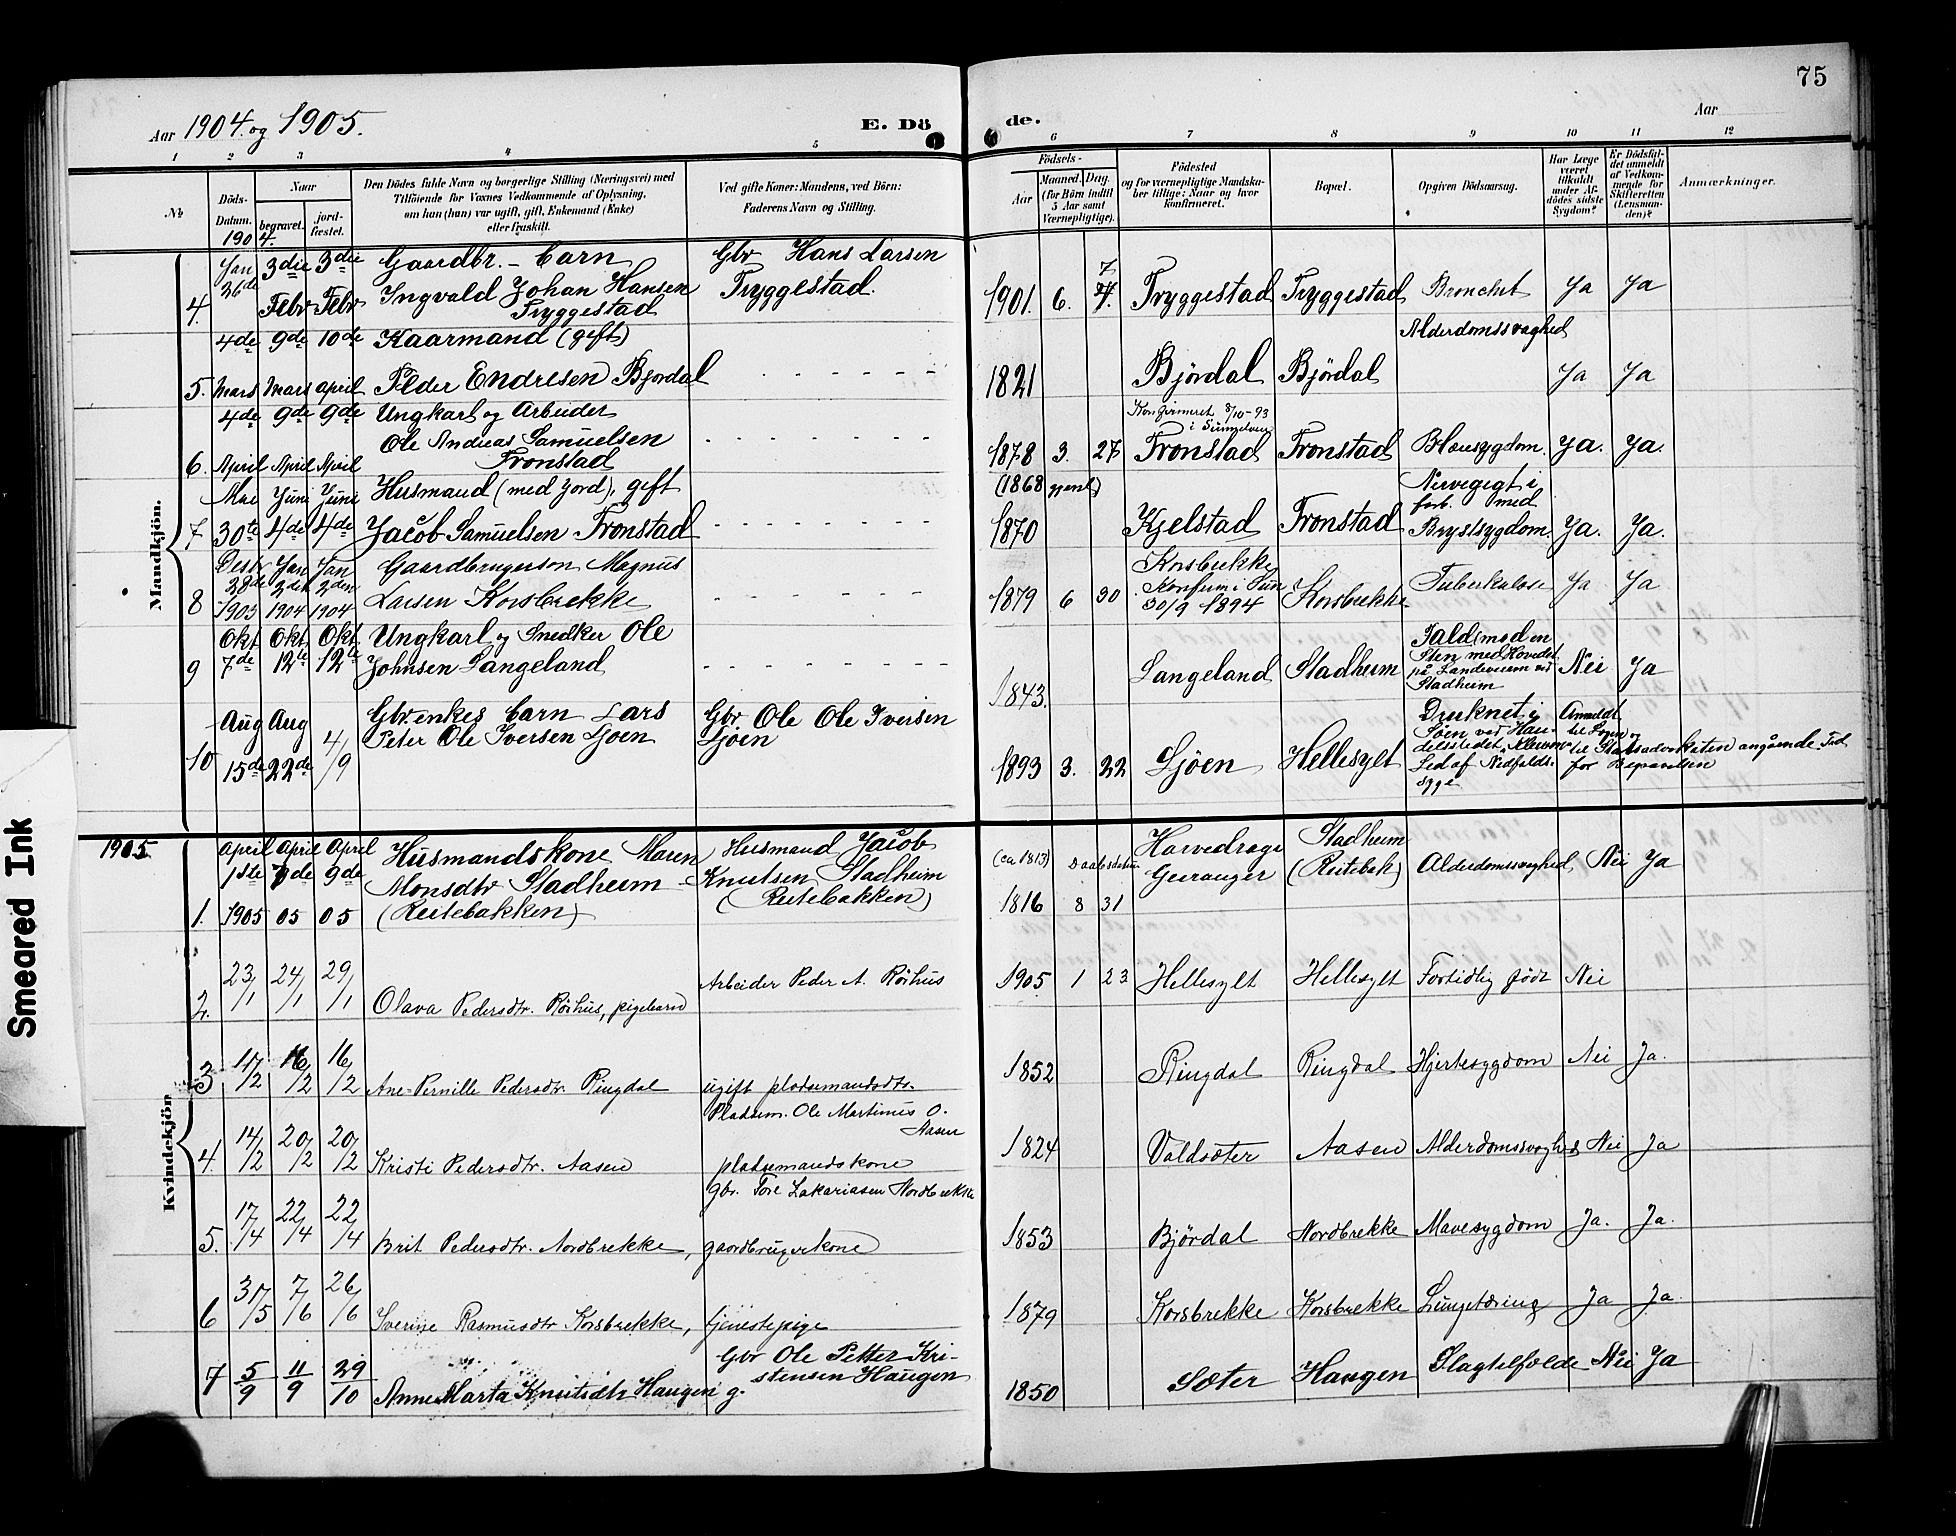 75
Aar 1904. og 1905.
E. Dö
de.
Aar
1 2 3 4 5
6 7 8 9 10 11 12
№
Döds-Datum. 1904.
Naar
begravet. jord-fæstet.
Den Dödes fulde Navn og borgerlige Stilling (Næringsvei) med
Tilföiende for Voxnes Vedkommende af Oplysning,
om han (hun) var ugift, gift, Enkemand (Enke)
eller fraskilt.
Ved gifte Koner: Mandens, ved Börn:
Faderens Navn og Stilling.
Födsels-
Aar
Maaned. Dag.
(for Börn indtil
5 Aar samt
Værnepligtige).
Födested
og for værnepligtige Mandska-
ber tillige: Naar og hvor
konfirmeret.
Bopæl.
Opgiven Dödsaarsag.
Har Læge
været
tilkaldt
under Af-
dödes sidste
Sygdom?
Er Dödsfal-
det anmeldt
af Vedkom-
mende for
Skifteretten
(Lensman-
den)?
Anmærkninger.
Mandkjön.
4. Jan 26de 3die Febr 3die Febr Gaardbr. - barn Ingvald Johan Hansen Tryggestad Gbr Hans Larsen Tryggestad. 1901. 6. 7 Tryggestad Tryggestad Bronchit Ja Ja
5. 4de Mars 9de Mars 10de April Kaarmand (gift) Peder Endresen Bjørdal - - - - - - 1821 Björdal Björdal Alderdomssvaghed Ja Ja
6. 4de April 9de April 9de April Ungkarl og Arbeider Ole Andreas Samuelsen Tronstad - - - - - - 1878 3. 27 Konfirmeret 8/10-93 i Sunnelven Tronstad Tronstad Ja. Ja.
7 Mai 30te Juni 4de Juni 4de Husmand (med Jord), gift Jacob Samuelsen Tronstad - - - - - - (1868) 1870 Kjelstad Tronstad Nervegigt i forb. med Brystsygdom. Ja. Ja.
8 Desbr 28de 1903 Jan 2den 1904 Jan 2den 1904 Gaardbrugerson Magnus Larsen Korsbrekke - - - - - - 1879 6 30 Korsbrekke Konfirm i Sun 30/9 1894 Korsbrekke Tuberkulose Ja Ja
9 Okt 7de Okt 12te Okt. 12te Ungkarl og Snedker Ole Johnsen Langeland - - - - - - 1843. Langeland Stadheim Faldt mod en Sten med Hovedet på Landeveien ved Stadheim Nei Ja
10 Aug 15de Aug 22de 4/9 Gbr.enkes barn Lars Peter Ole Iversen Ljøen Gbr Ole Ole Iversen Ljöen 1893 3. 22 Ljöen Hellesylt Druknet i Söen ved Han-delsstedet Led af Nedfalds-syge Anmeldt til Statsadvokaten angående
1905.
Kvindekjön
1. April 1ste 1905 April 7de 05 April 9de 05 Husmandskone Maren Monsdtr Stadheim (Reitebakken) Husmand Jacob Knutsen Stadheim (Reitebakken) (ca 1813) Daabsdatum 1816 8 31 Geiranger Stadheim (Reitebak) Alderdomssvaghed Nei Ja
2. 23/1 24/1 29/1 Olava Pedersdtr. Röihus, pigebarn Arbeider Peder A. Röihus 1905 1 23 Hellesylt Hellesylt Fortidlig født Nei
3 11/2 16/2 16/2 Ane-Pernille Pedersdtr Ringdal ugift pladsmandsdtr. 1852 Ringdal Ringdal Hjertesygdom Nei Ja.
4. 14/2 20/2 20/2 Kristi Pedersdtr. Aasen Pladsm. Ole Martinus O. Aasen pladsemandskone 1824 Valdsæter Aasen Alderdomssvaghed Nei Ja
5. 17/4 22/4 22/4 Brit Pedersdtr. Nordbrekke, gbr. Tore Zakariasen Nordbrekke gaardbrugerkone 1853 Björdal Nordbrekke Mavesygdom Ja. Ja.
6 31/5 7/6 26/6 Iverine Rasmusdtr Korsbrekke, tjenestepige 1879 Korsbrekke Korsbrekke Lungetæring Ja Ja.
7 5/9 11/9 29/10 Anne Marta Knutsdtr Haugen g. Gbr Ole Petter Kri-stensen Haugen 1850 Sæter Haugen Slagtilfælde Nei Ja
Smeared Ink